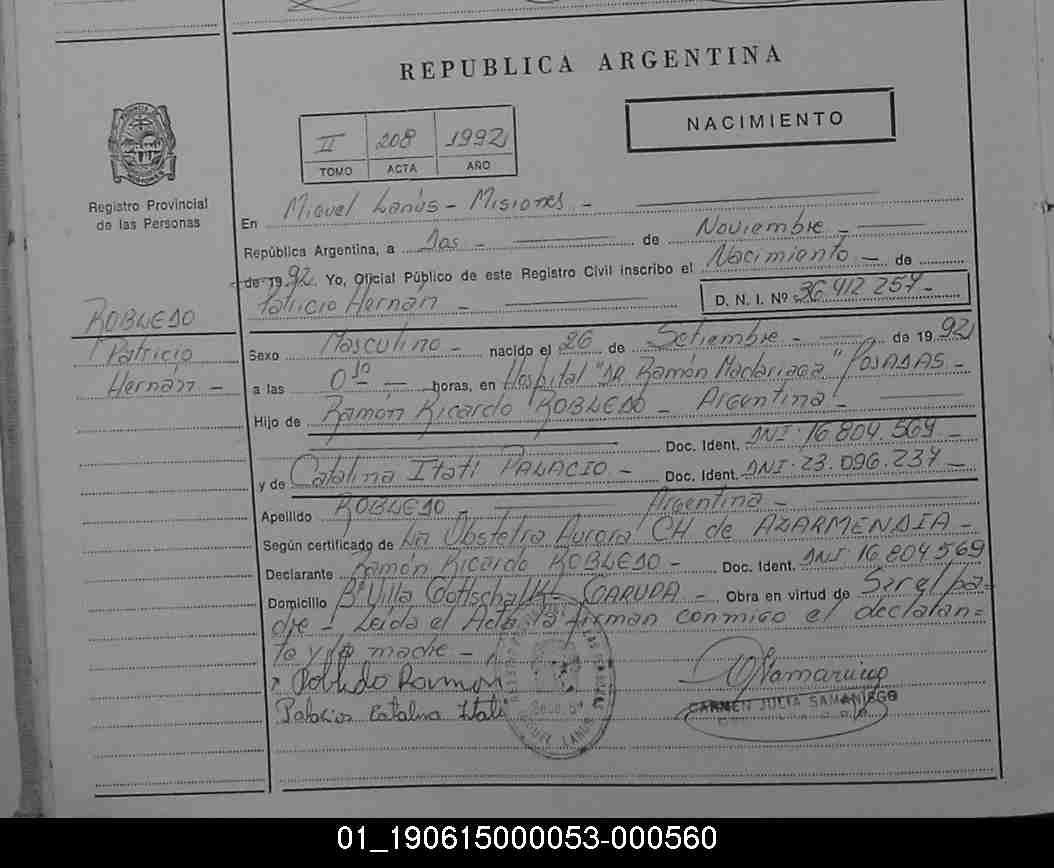 REPUBLICA ARGENTINA
NACIMIENTO
II 208 1992
TOMO ACTA AÑO
Registro Provincial
de las Personas
En Miguel Lanús - Misiones -
República Argentina, a dos - de Noviembre -
de 1992. Yo, Oficial Público de este Registro Civil inscribo el Nacimiento - de
Patricio Hernán - D. N. I. Nº 36.412.257-
ROBLEDO
Patricio
Hernán -
Sexo Masculino - nacido el 26 de Setiembre - de 1992
a las 0 10 - horas, en Hospital "DR. Ramón Madariaga" POSADAS -
Hijo de Ramón Ricardo ROBLEDO - Argentina -
Doc. Ident. DNI. 16.804.569 -
y de Catalina Itatí PALACIO - Doc. Ident. DNI. 23.096.237 -
Argentina -
Apellido ROBLEDO -
Según certificado de La Obstetra Aurora CH de AZARMENDIA -
Declarante Ramón Ricardo ROBLEDO - Doc. Ident. DNI 16.804.569
Domicilio Bº Villa Gottschalk - GARUPA - Obra en virtud de Ser el pa-
dre - Leída el Acta la firman conmigo el declaran=
te y la madre -
Robledo Ramon
Palacios Catalina Itati
CARMEN JULIA SAMANIEGO
01_190615000053-000560